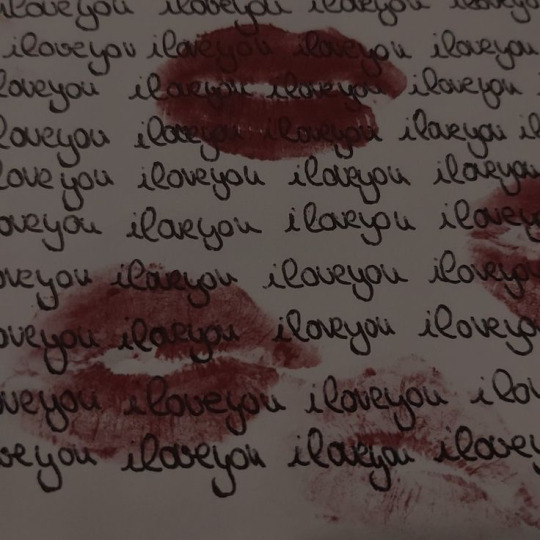 iloveyou iloveyou iloveyou iloveyou
iloveyou iloveyou iloveyou iloveyou
loveyou iloveyou iloveyou iloveyou
loveyou iloveyou iloveyou iloveyou il
love you iloveyou iloveyou iloveyou
oveyou iloveyou iloveyou iloveyou
oveyou iloveyou iloveyou iloveyou
oveyou iloveyou iloveyou iloveyo
veyou iloveyou iloveyou ilov
veyou iloveyou iloveyou ilovey